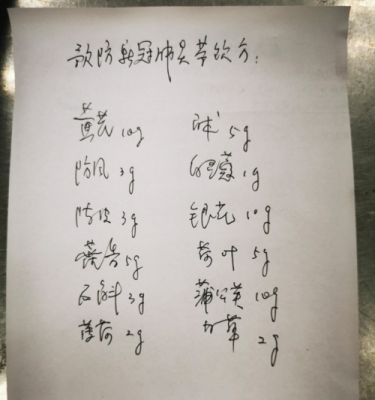 预防新冠肺炎茶饮方:
黄芪 10g 白术 5g
防风 3g 1g
陈皮 3g 银花 10g
藿香 5g 荷叶 5g
石斛 3g 蒲公英 10g
薄荷 2g 甘草 2g